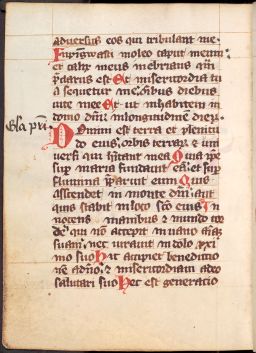 aduersus eos qui tribulant me.
Inpingwasti in oleo caput meum
et calix meus inebrians qm
pclarus est Et misericordia tu
a sequetur me. oibus diebus
uite mee Et ut inhabitem in
domo dni in longitudine dierz.
Domini est terra et plenitu
do eius. orbis terrarz et uni
uersi qui hitant in ea Quia ipe
sup maria fundauit eu et sup
flumina pparauit eum Quis
ascendet in monte dni aut
quis stabit in loco sco eius In
nocens manibus et mundo cor
de qui non accepit in uano aiam
suam. nec iurauit in dolo pxi
mo suo Hic accipiet benedictio
ne a dno. et misericordiam a deo
salutari suo Hec est generatio